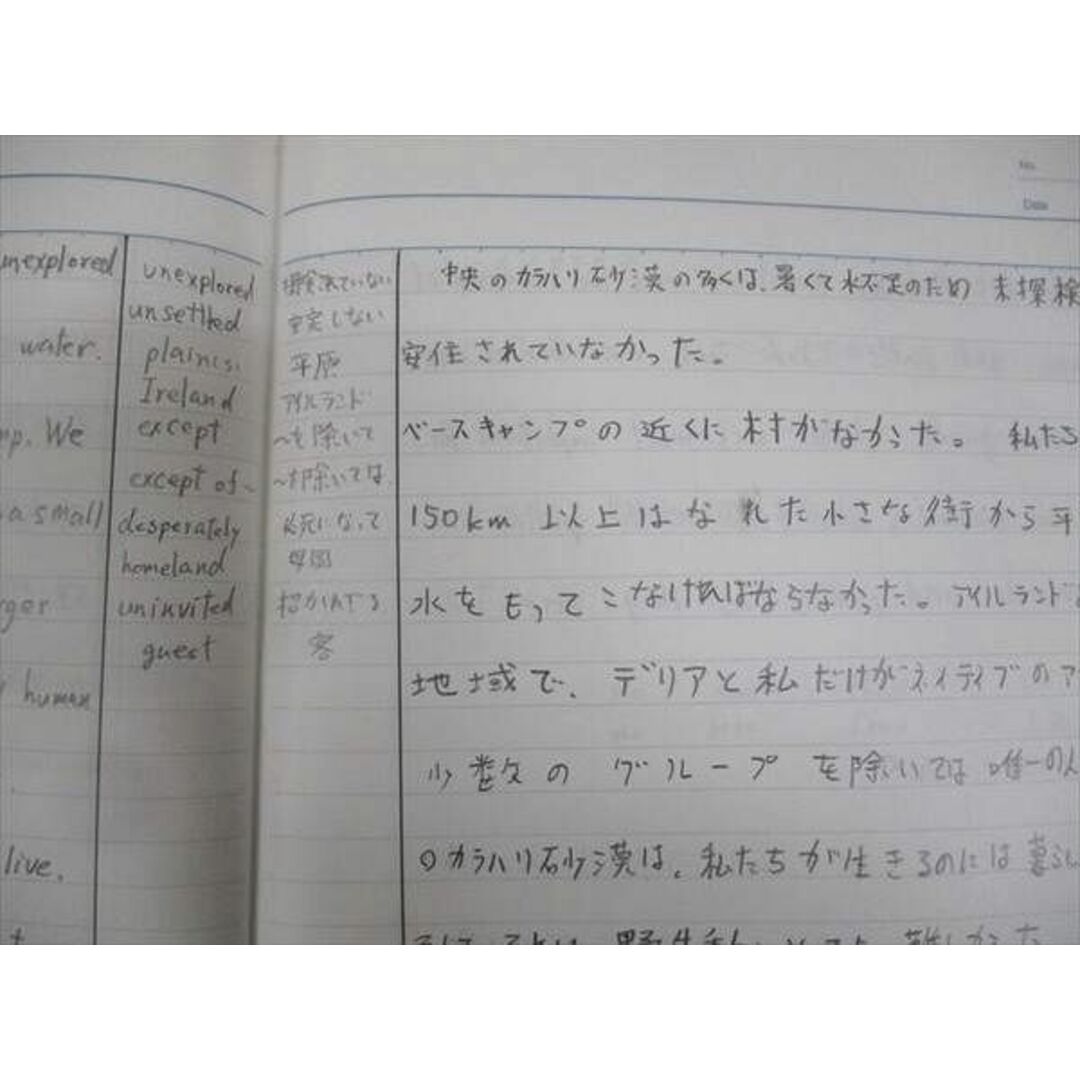 No.
Date
unexplored
water.
We
a small
human
live.
unexplored
unsettled
plain(s).
Ireland
except
except of~
desperately
homeland
uninvited
guest
されていない
安定しない
平原
アイルランド
~を除いて
~を除いては
必死になって
母国
招かれざる
客
中央のカラハリ砂漠の多くは、暑くて水不足のため 未探検
安住されていなかった。
ベースキャンプの近くに村がなかった。 私たち
150km 以上はなれた小さな街から平
水をもってこなければならなかった。アイルランド
地域で、デリアと私だけがネイティブのア
少数のグループを除いては唯一の人
のカラハリ砂漠は、私たちが生きるのには暮らし
野生 難しかった